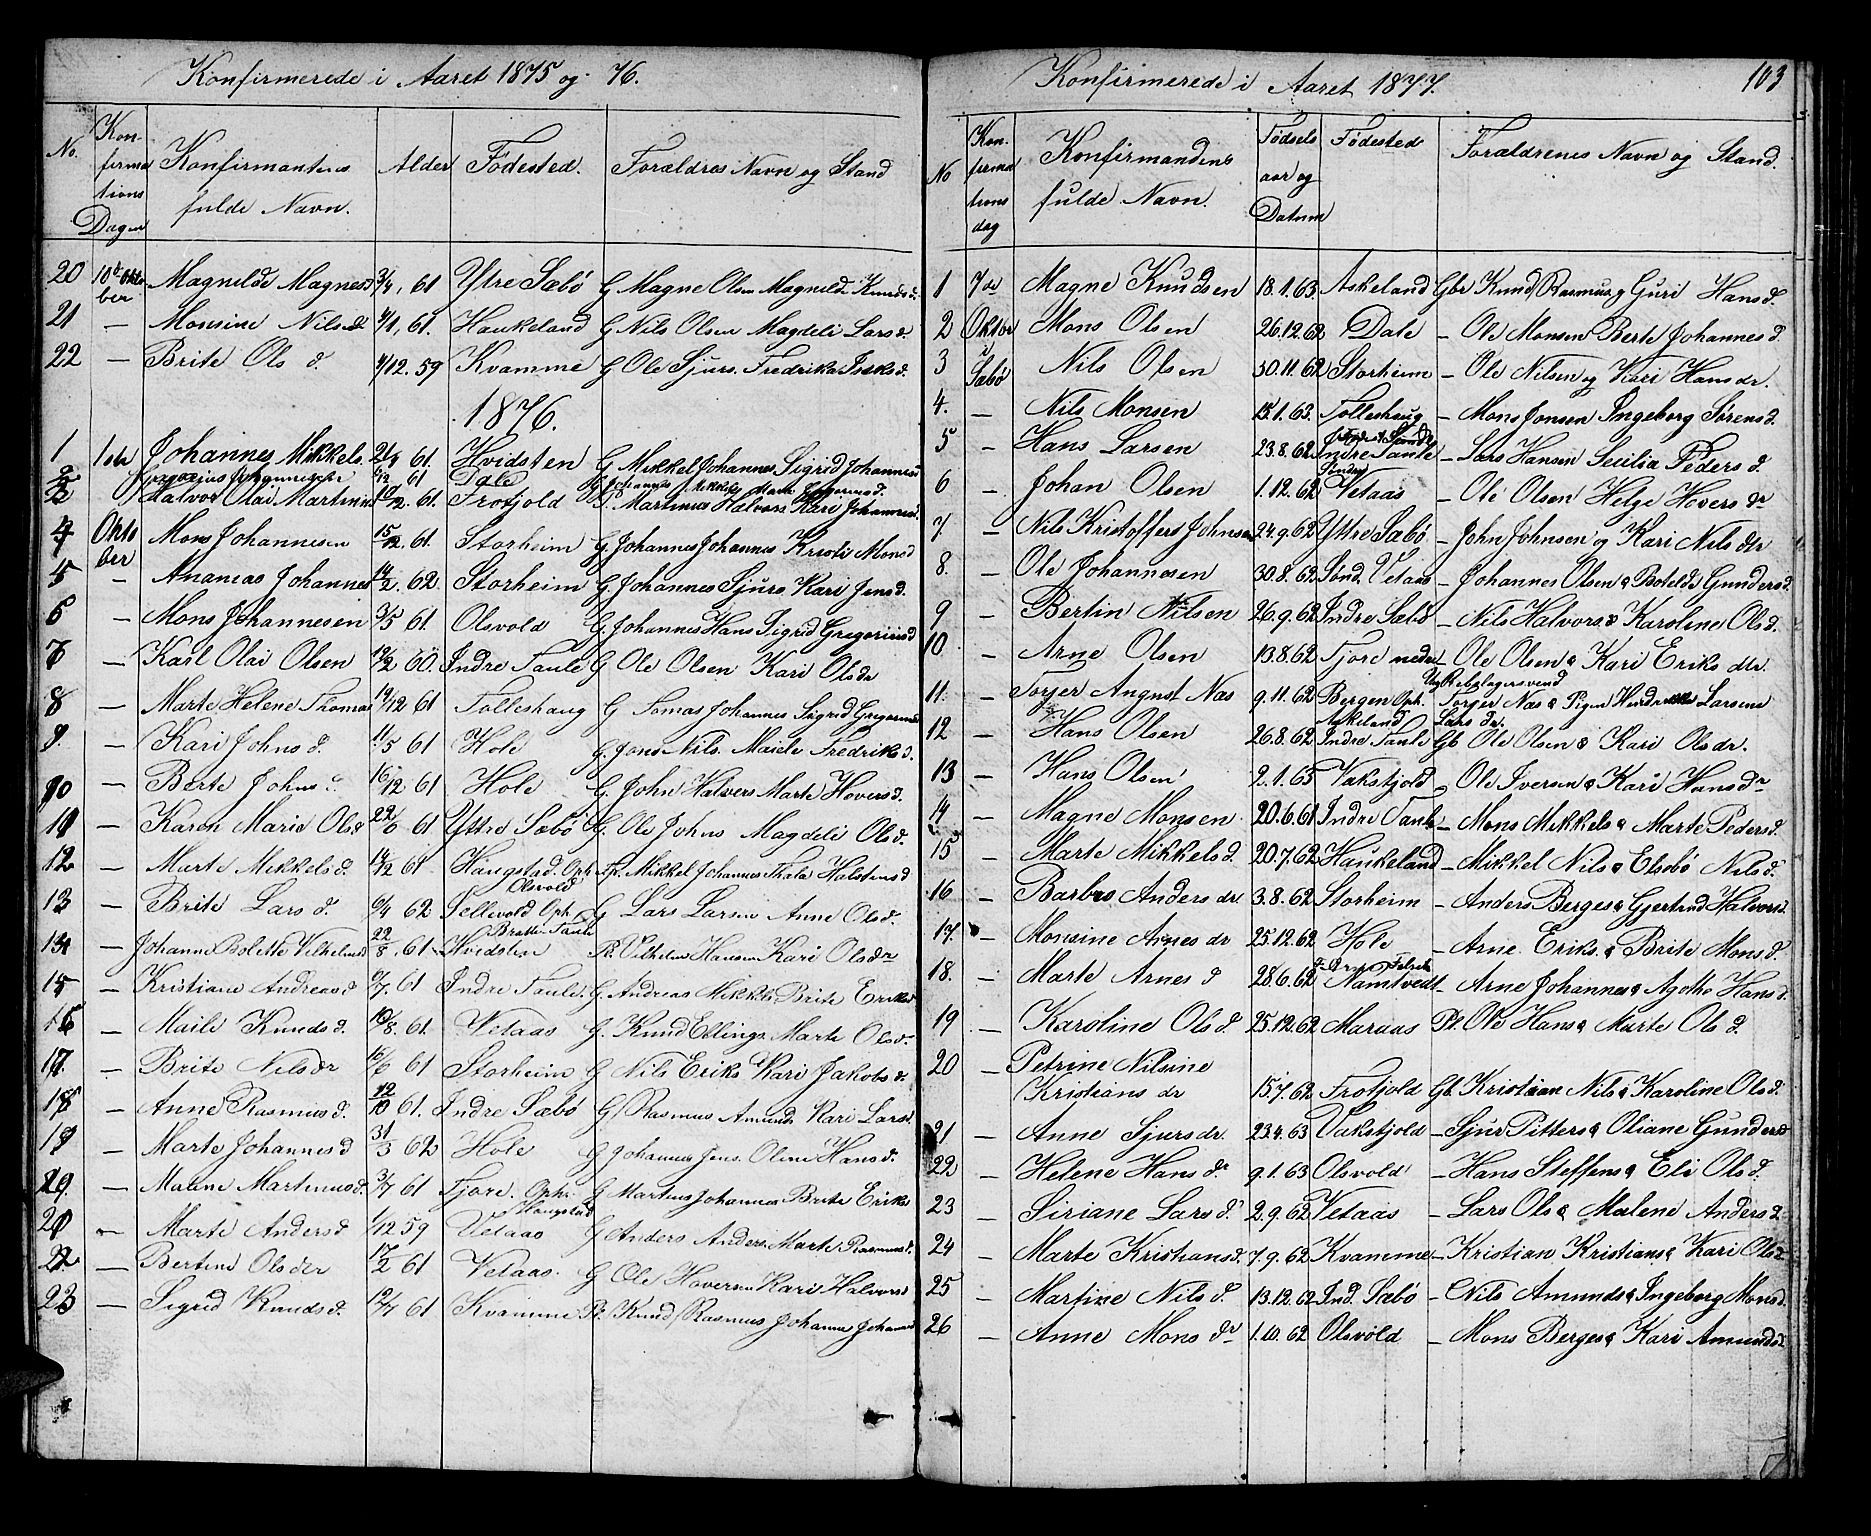 Konfirmerede i Aaret 1875 og 76.
No. Konfirmations Dagen Konfirmantens fulde Navn. Alder Fødested. Forældres Navn og Stand
20 10de Oktober Magnilde Magnesd 3/4, 61 Ytre Sæbø G Magne Olsen Magnilde Knudsd.
21 — Monsine Nilsd 4/1, 61. Haukeland G Nils Olsen Magdeli Larsd
22 — Brite Ols d. 4/12. 59 Kvamme G Ole Sjurs. Fredrika Isaksd.
1876.
1 1ste Johannes Mikkels. 61. Hvidsten G Mikkel Johannes Sigrid Johannesd
2 Johannesen 61 Dale Johannes Mikkels
3 Halvor Olai Martinus 61. Frotjold P. Martinus Halvors Kari Johannesd.
4 Oktober Mons Johannesen 15/2. 61. Storheim G Johannes Johannes Kristi Monsd
5 — Ananias Johannes 14/2. 62. Storheim G. Johannes Sjurs. Kari Jensd.
6 — Mons Johannesen 3/5 61. Olsvold G. Johannes Hans Sigrid Gregoriusd
7 — Karl Olai Olsen 12/2 60. Indre Taule G Ole Olsen Kari Olsdr
8 — Marte Helene Thomas 19/12 61 Tolleshaug G Tomas Johannes Sigrid Gregoriusd
9. — Kari Johns d. 11/5 61 Hole G. Jons Nils. Maiele Fredriksd.
10 — Berte Johns d 16/12 61 Hole G. John Halvers Marte Hoversd.
11 — Karen Marie Olsd 22/6 61 Ytre Sæbø G. Ole Johns Magdeli Olsd.
12 — Marte Mikkelsd. 14/12 61. Haugstad. Oph Olsvold Mikkel Johannes Thala Halstensd
13 — Brite Lars d. 6/4 62 Sellevold Oph. Bratte-Taule G Lars Larsen Anne Olsd.
14 — Johanne Bolette Vilhelmsd 22/8. 61 Hvidsten Pl. Vilhelm Hansen Kari Olsdr
15 — Kristiane Andreasd 61 Indre Taule. G. Andreas Mikkls Brite Eriksd
16 — Maile Knudsd. 19/8. 61. Vetaas G. Knud Ellings. Marte Olsd.
17. — Brite Nilsdr 16/6 61 Storheim G Nils Eriks Kari Jakobsd.
18 — Anne Rasmusd. 12/10 61. Indre Sæbø G Rasmus Amunds Kari Larsd.
19 — Marte Johannesd 31/3 62 Hole G Johannes Jens. Oline Hansd.
20. — Malene Martinusd. 3/7 61 Fjore. Oph. Haugstad G Martinus Johannes Brite Eriks
21 — Marte Andersd 1/12 59 Vetaas G Anders Anders. Marte Rasmusd.
22 — Bertine Olsder 17/2 61 Vetaas. G Ole Haversen Kari Halvorsd
23 — Sigrid Knudsd. 12/7 61 Kvamme Pl. Knud Rasmus Johanna Johannesd
103
Konfirmerede i Aaret 1877.
No Konfirmationsdag Konfirmandens fulde Navn. Fødsels aar og Datum Fødested Forældrenes Navn og Stand.
1 7de Magne Knudsen 18.1.63. Askeland Gbr Knud Rasmus og Guri Hansd.
2 Oktbr Mons Olsen 26.12.62 Dale — Ole Monsen Berte Johannesd.
3 i Sæbø Nils Olsen 30.11.62 Storheim — Ole Nilsen og Kari Hansdr.
4. — Nils Monsen 15.1.63. Tolleshaug — Mons Jonsen Ingeborg Sørensd.
5 — Hans Larsen 23.8.62 Indre Taule — Lars Hansen Secilia Pedersd.
6 — Johan Olsen 1.12.62 Søndre Vetaas — Ole Olsen Helge Hoversdr
7. — Nils Kristoffers Johnsen 24.9.62 Yttre Sæbø. — John Johnsen og Kari Nilsdtr
8. — Ole Johannesen 30.8.62 Sønd. Vetaas — Johannes Olsen & Botilde Gundersd.
9 — Bertin Nilsen 26.9.62 Indre Sæbø — Nils Halvors & Karoline Olsd.
10 — Arne Olsen 13.8.62 Fjore nedre — Ole Olsen & Kari Eriks dtr.
11. — Torger August Næs 9.11.62 Bergen Oph. Askeland Torger Næs & Pigen Larsine Lars dr.
12 — Hans Olsen 26.8.62 Indre Taule Gb Ole Olsen & Kari Olsdr.
13 — Hans Olsen 2.1.63 Vakstjold — Ole Iversen & Kari Hansdr
14 — Magne Monsen 20.6.61 Indre Taule — Mons Mikkels & Marte Pedersd.
15 — Marte Mikkelsd. 20.7.62 Haukeland — Mikkel Nils & Elsebø Nilsd.
16 — Barbro Anders dr 3.8.62 Storheim — Anders Berges & Gjertrud Halvorsd.
17. — Monsine Arnes dr 25.12.62 Hole — Arne Eriks. & Brite Monsd.
18. — Marte Arnes d 28.6.62 Namtvedt — Arne Johannes & Agathe Hansd.
19 — Karoline Olsd. 25.12.62 Maraas Pl. Ole Hans & Marte Olsd.
20 — Petrine Nilsine
Kristians dr 15.7.62 Frotjold Gb. Kristian Nils & Karoline Olsd.
21 — Anne Sjursdr. 23.4.63 Vakstjold — Sjur Pitters & Oliane Gundersd
22 — Helene Hansdr. 9.1.63 Olsvold — Hans Steffens & Eli Olsd.
23 — Siriane Larsd. 2.9.62 Vetaas — Lars Ols & Malene Andersd
24 — Marte Kristiansd. 7.9.62 Kvamme — Kristian Kristians & Kari Olsd
25 — Martine Nilsd. 13.12.62 Ind. Sæbø — Nils Amunds & Ingeborg Monsd.
26 — Anne Monsdr 1.10.62 Olsvold — Mons Berges & Kari Amundsd